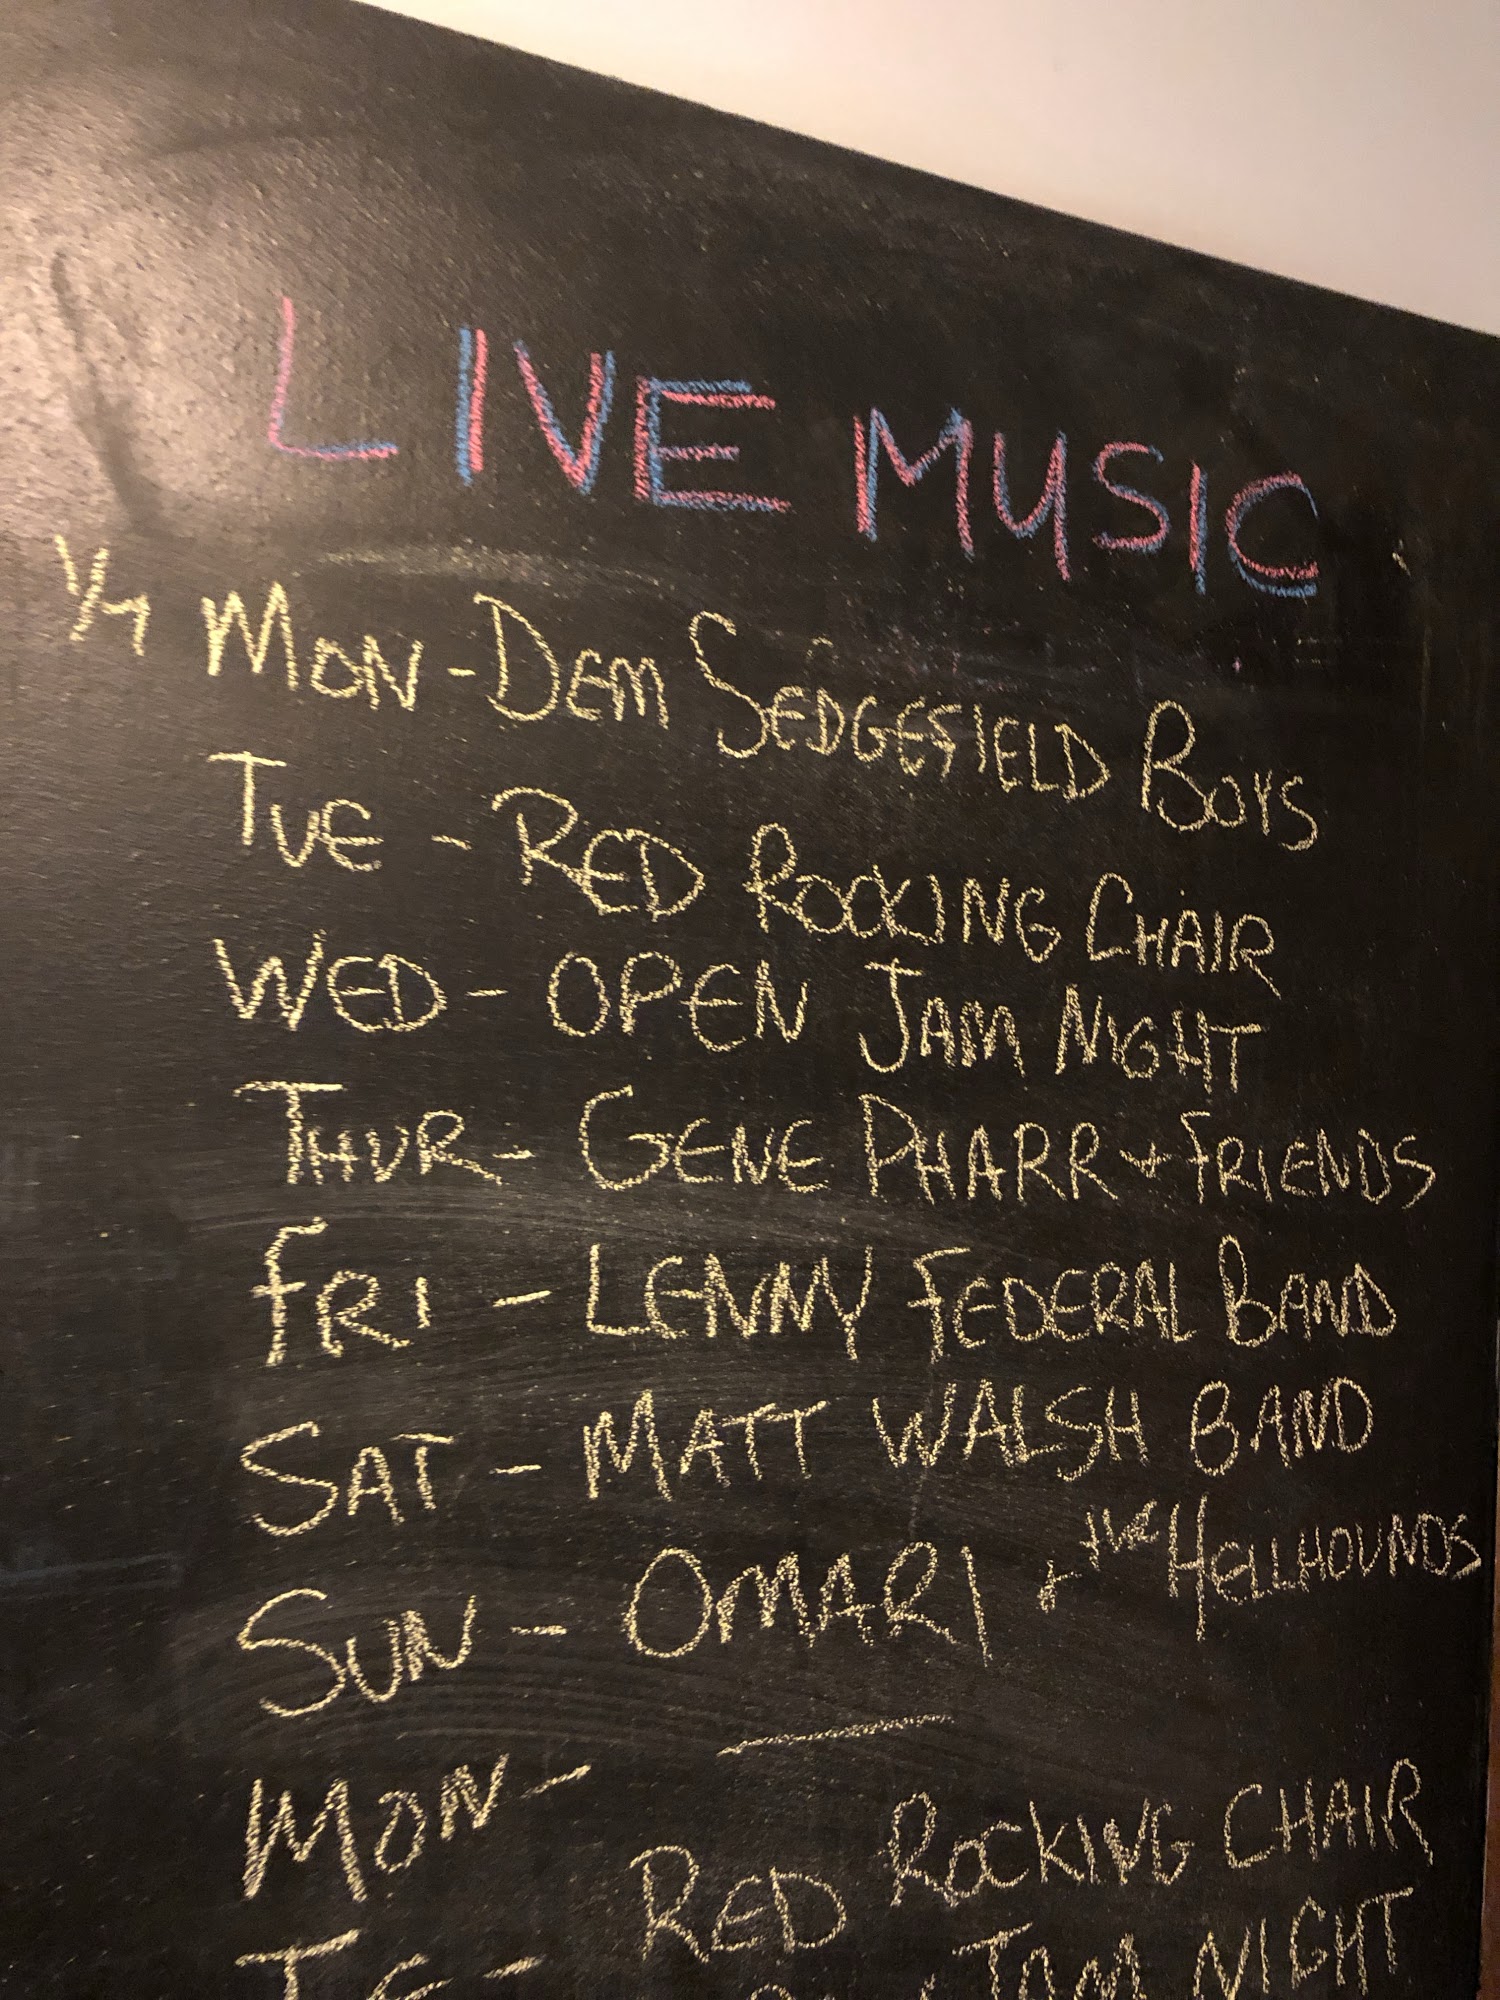 LIVE MUSIC
1/7 MON - DEM SEDGEFIELD BOYS
TUE - RED ROCKING CHAIR
WED - OPEN JAM NIGHT
THUR - GENE PHARR + FRIENDS
FRI - LENNY FEDERAL BAND
SAT - MATT WALSH BAND
SUN - OMARI + the HELLHOUNDS
MON - —
RED ROCKING CHAIR
JAM NIGHT